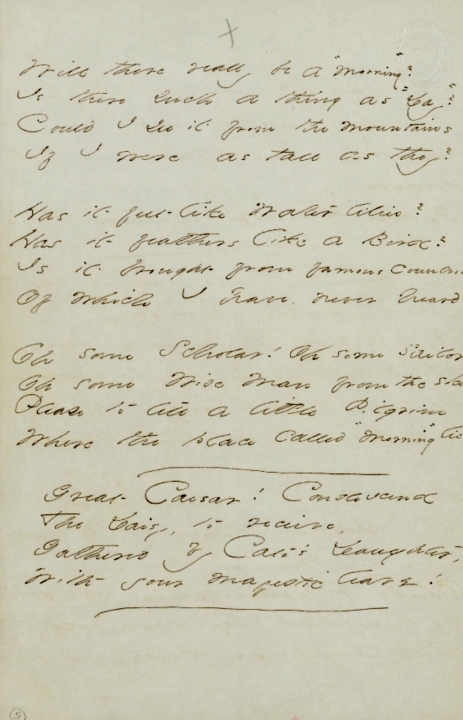 Will there really be a "morning"?
Is there such a thing as "Day"?
Could I see it from the mountains
If I were as tall as they?
Has it feet like Water lilies?
Has it feathers like a Bird?
Is it brought from famous countrie
Of which I have never heard
Oh some Scholar! Oh some Sailor
Oh some Wise Man from the ski
Please to tell a little Pilgrim
Where the place called "morning" lie
Great Caesar! Condescend
The Daisy, to receive,
Gathered by Cato's Daughter,
With your majestic leave!
5